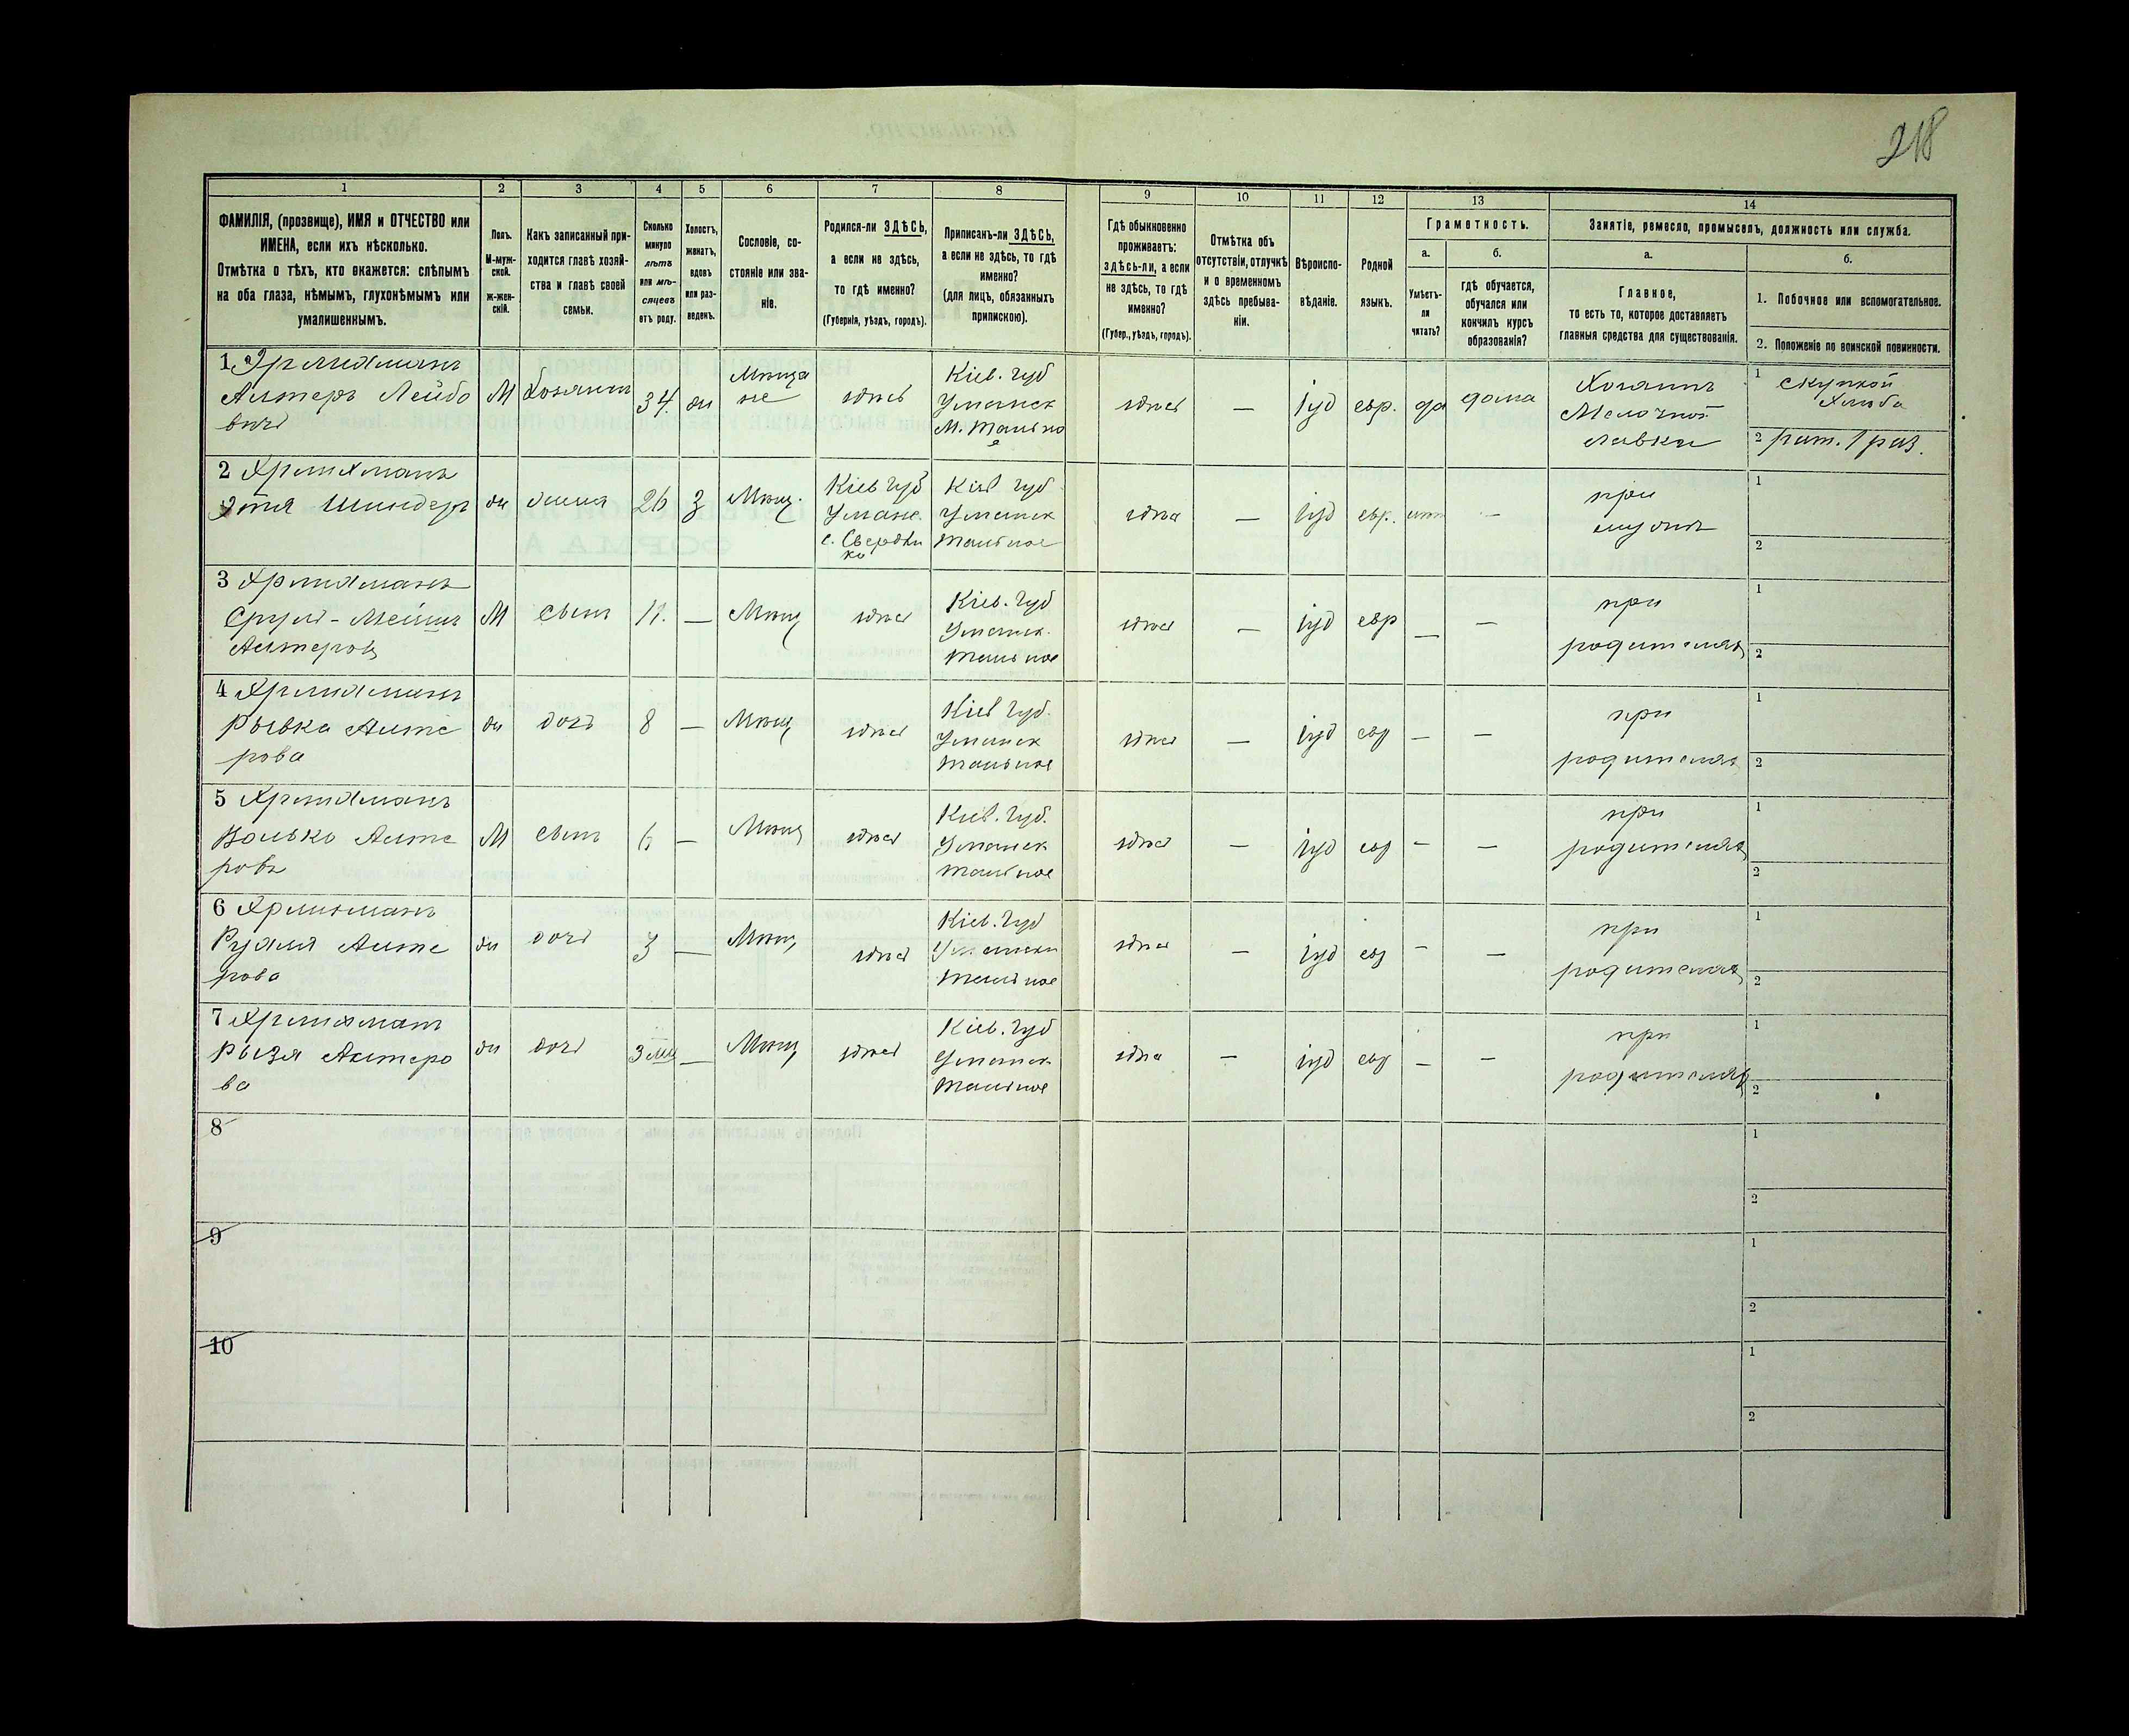 218
1 2 3 4 5 6 7 8 9 10 11 12 13 14
ФАМИЛІЯ, (прозвище), ИМЯ и ОТЧЕСТВО или
ИМЕНА, если ихъ нѣсколько.
Отмѣтка о тѣхъ, кто окажется: слѣпымъ
на оба глаза, нѣмымъ, глухонѣмымъ или
умалишеннымъ.
Полъ.
М-муж-
ской.
ж-жен-
скій.
Какъ записанный при-
ходится главѣ хозяй-
ства и главѣ своей
семьи.
Сколько
минуло
лѣтъ
или мѣ-
сяцевъ
отъ роду.
Холостъ,
женатъ,
вдовъ
или раз-
веденъ.
Сословіе, со-
стояніе или зва-
ніе.
Родился-ли ЗДѢСЬ,
а если не здѣсь,
то гдѣ именно?
(Губернія, уѣздъ, городъ).
Приписанъ-ли ЗДѢСЬ,
а если не здѣсь, то гдѣ
именно?
(для лицъ, обязанныхъ
припискою).
Гдѣ обыкновенно
проживаетъ:
здѣсь-ли, а если
не здѣсь, то гдѣ
именно?
(Губер., уѣздъ, городъ).
Отмѣтка объ
отсутствіи, отлучкѣ
и о временномъ
здѣсь пребыва-
ніи.
Вѣроиспо-
вѣданіе.
Родной
языкъ.
Грамотность.
а.
Умѣетъ-
ли
читать?
б.
гдѣ обучается,
обучался или
кончилъ курсъ
образованія?
Занятіе, ремесло, промыселъ, должность или служба.
а.
Главное,
то есть то, которое доставляетъ
главныя средства для существованія.
б.
1. Побочное или вспомогательное.
2. Положеніе по воинской повинности.
1
Алтеръ Лейбо
вичъ
М
Хозяинъ
34.
жи
Мѣща
не
здѣсь
Кіев. губ
Уманск
М. Тально
е
здѣсь
—
іуд
евр.
да
дома
Хозяинъ
Мелочной
лавки
1 Скупкой
Хлѣба
2 рат. 1 раз.
2
Этя
жи
жена
26
з
Мѣщ.
Кіев губ
Уман.
с. Свердли
ко
Кіев губ
Уманск
Тальное
здѣсь
—
іуд
евр.
нѣт
—
при
мужѣ
1
2
3
Сруль-
Алтеровъ
М
сынъ
11.
—
Мѣщ
здѣсь
Кіев. губ
Уманск.
Тальное
здѣсь
—
іуд
евр
—
—
при
родителях
1
2
4
Рывка Алте
рова
жи
дочь
8
—
Мѣщ
здѣсь
Кіев губ.
Уманск
Тальное
здѣсь
—
іуд
евр
—
—
при
родителях
1
2
5
Волько Алте
ровъ
М
сынъ
6
—
Мѣщ
здѣсь
Кіев. губ.
Уманск
Тальное
здѣсь
—
іуд
евр
—
—
при
родителях
1
2
6
Алте
рова
жи
дочь
3
—
Мѣщ
здѣсь
Кіев. губ
Тальное
здѣсь
—
іуд
евр
—
—
при
родителях
1
2
7
Рызя Алтеро
ва
жи
дочь
3 мц
—
Мѣщ
здѣсь
Кіев. губ
Уманск
Тальное
здѣсь
—
іуд
евр
—
—
при
родителях
1
2
8
1
2
9
1
2
10
1
2